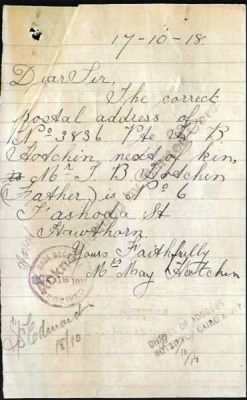 17-10-18.
Dear Sir,
The correct
postal address of
No 3836 Pte H B
Hotchin, next of kin,
is Mr T. B. Hotchin
(Father) is No 6
Fashoda St
Hawthorn.
Yours Faithfully
Mrs May Hotchin
18/10
OF ADDRESS